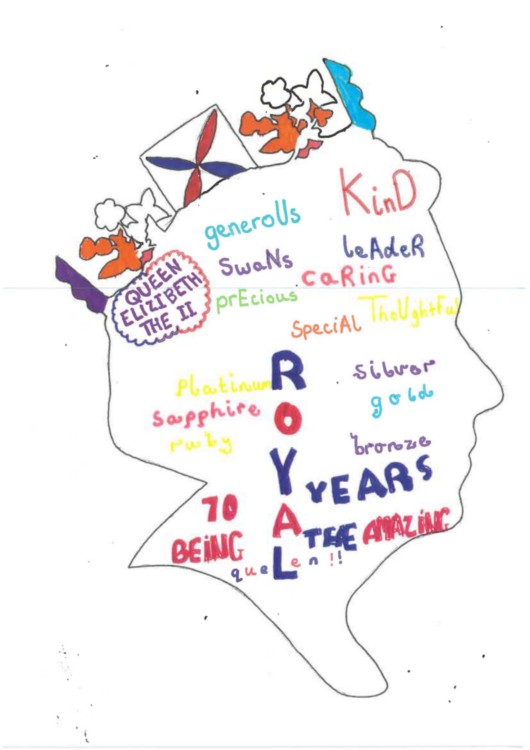 KinD
generoUs
leAdeR
SwaNs
caRinG
QUEEN
ELIZIBETH
THE II
prEcious
ThoUghtful
SpeciAl
ROYAL
platinum
silver
sapphire
gold
ruby
bronze
70 YEARS
BEiNG THE AMAZiNG
queen!!